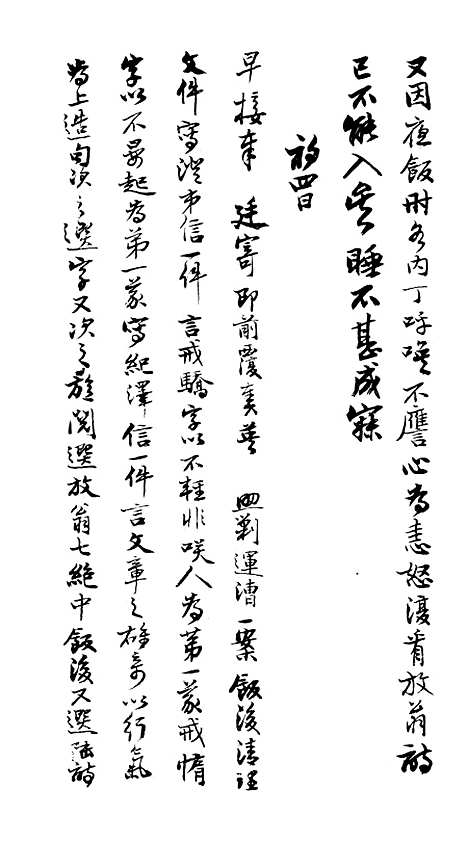 又因夜飯時各內丁呼喚不譍心為恚怒漫看放翁詩
已不能入矣睡不甚成寐
初四日
早接奉 廷寄即前覆奏英 㗖剿運漕一案飯後清理
文件寫澄弟信一件言戒驕字以不輕非咲人為第一義戒惰
字以不晏起為第一義寫紀澤信一件言文章之雄奇以行氣
為上造句次之選字又次之旋閱選放翁七絕中飯後又選陸詩